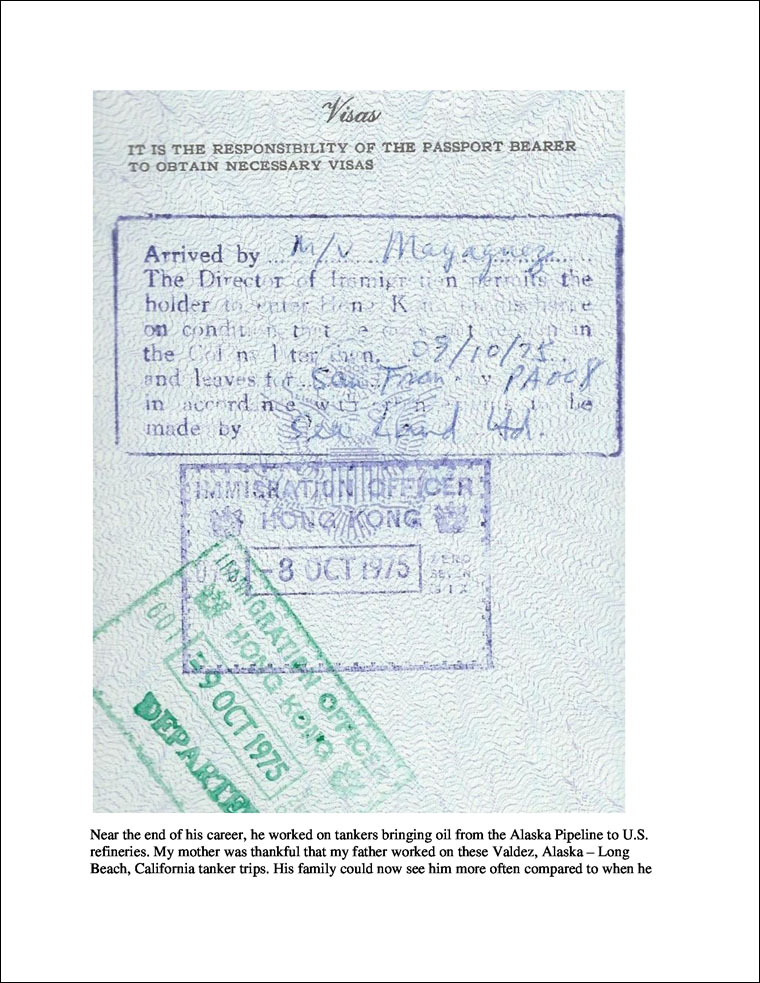 Visas
IT IS THE RESPONSIBILITY OF THE PASSPORT BEARER
TO OBTAIN NECESSARY VISAS
Arrived by M/V Mayaguez
The Director of Immigration permits the
holder to enter Hong Kong to discharge
on condition that he does not remain in
the Colony later than 09/10/75
and leaves for San Fran by PA008
in accordance with arrangements to be
made by Sea Land Ltd.
IMMIGRATION OFFICER
HONG KONG
-8 OCT 1975
ZERO
SEVEN
SIX
IMMIGRATION OFFICER
HONG KONG
(60)
-9 OCT 1975
DEPARTE
Near the end of his career, he worked on tankers bringing oil from the Alaska Pipeline to U.S.
refineries. My mother was thankful that my father worked on these Valdez, Alaska – Long
Beach, California tanker trips. His family could now see him more often compared to when he